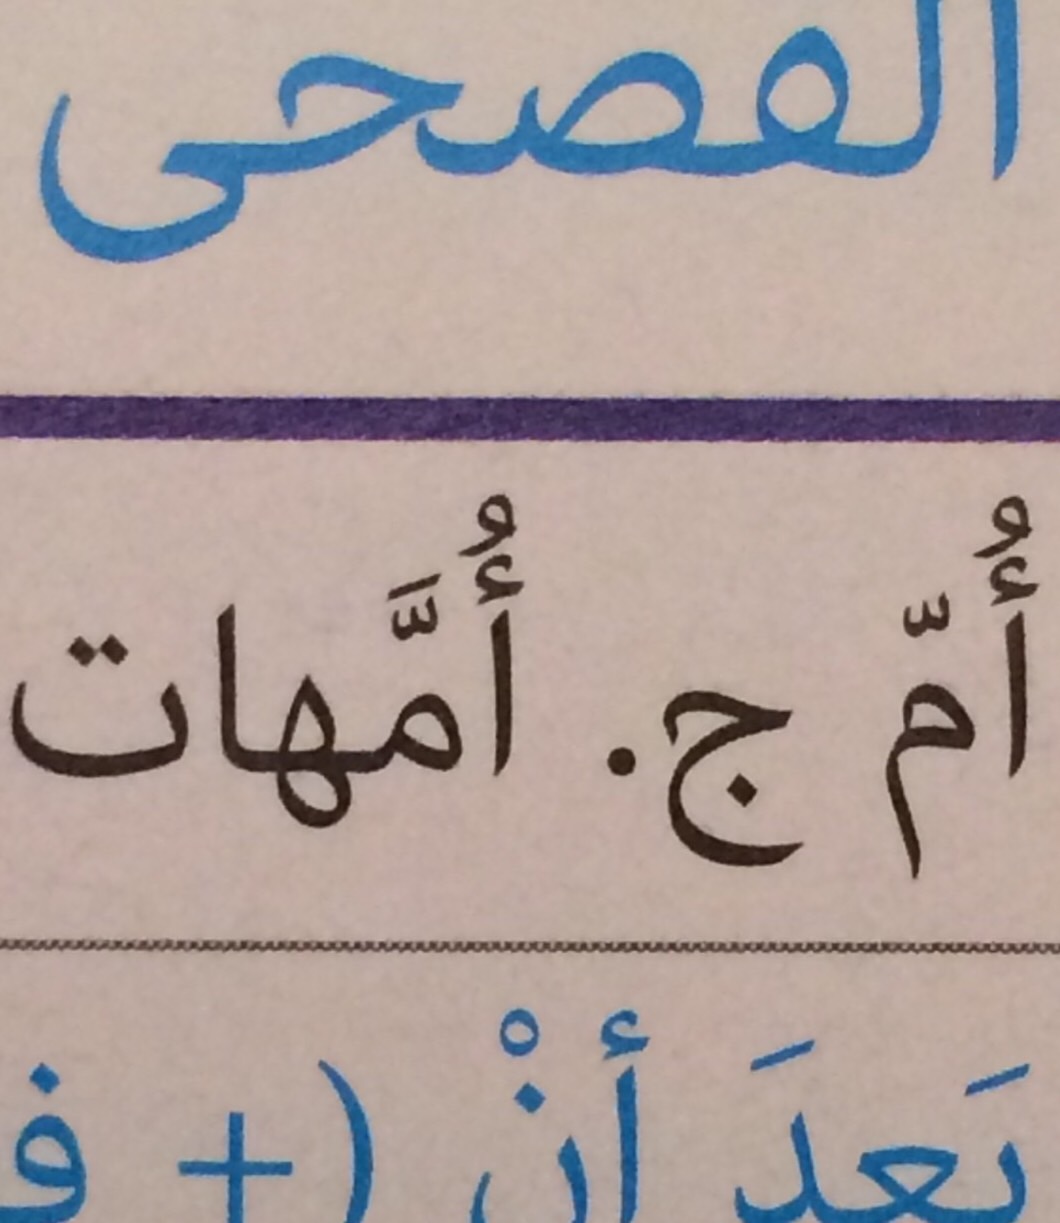 الفصحى
أُمّ ج. أُمَّهات
بَعدَ أنْ (+